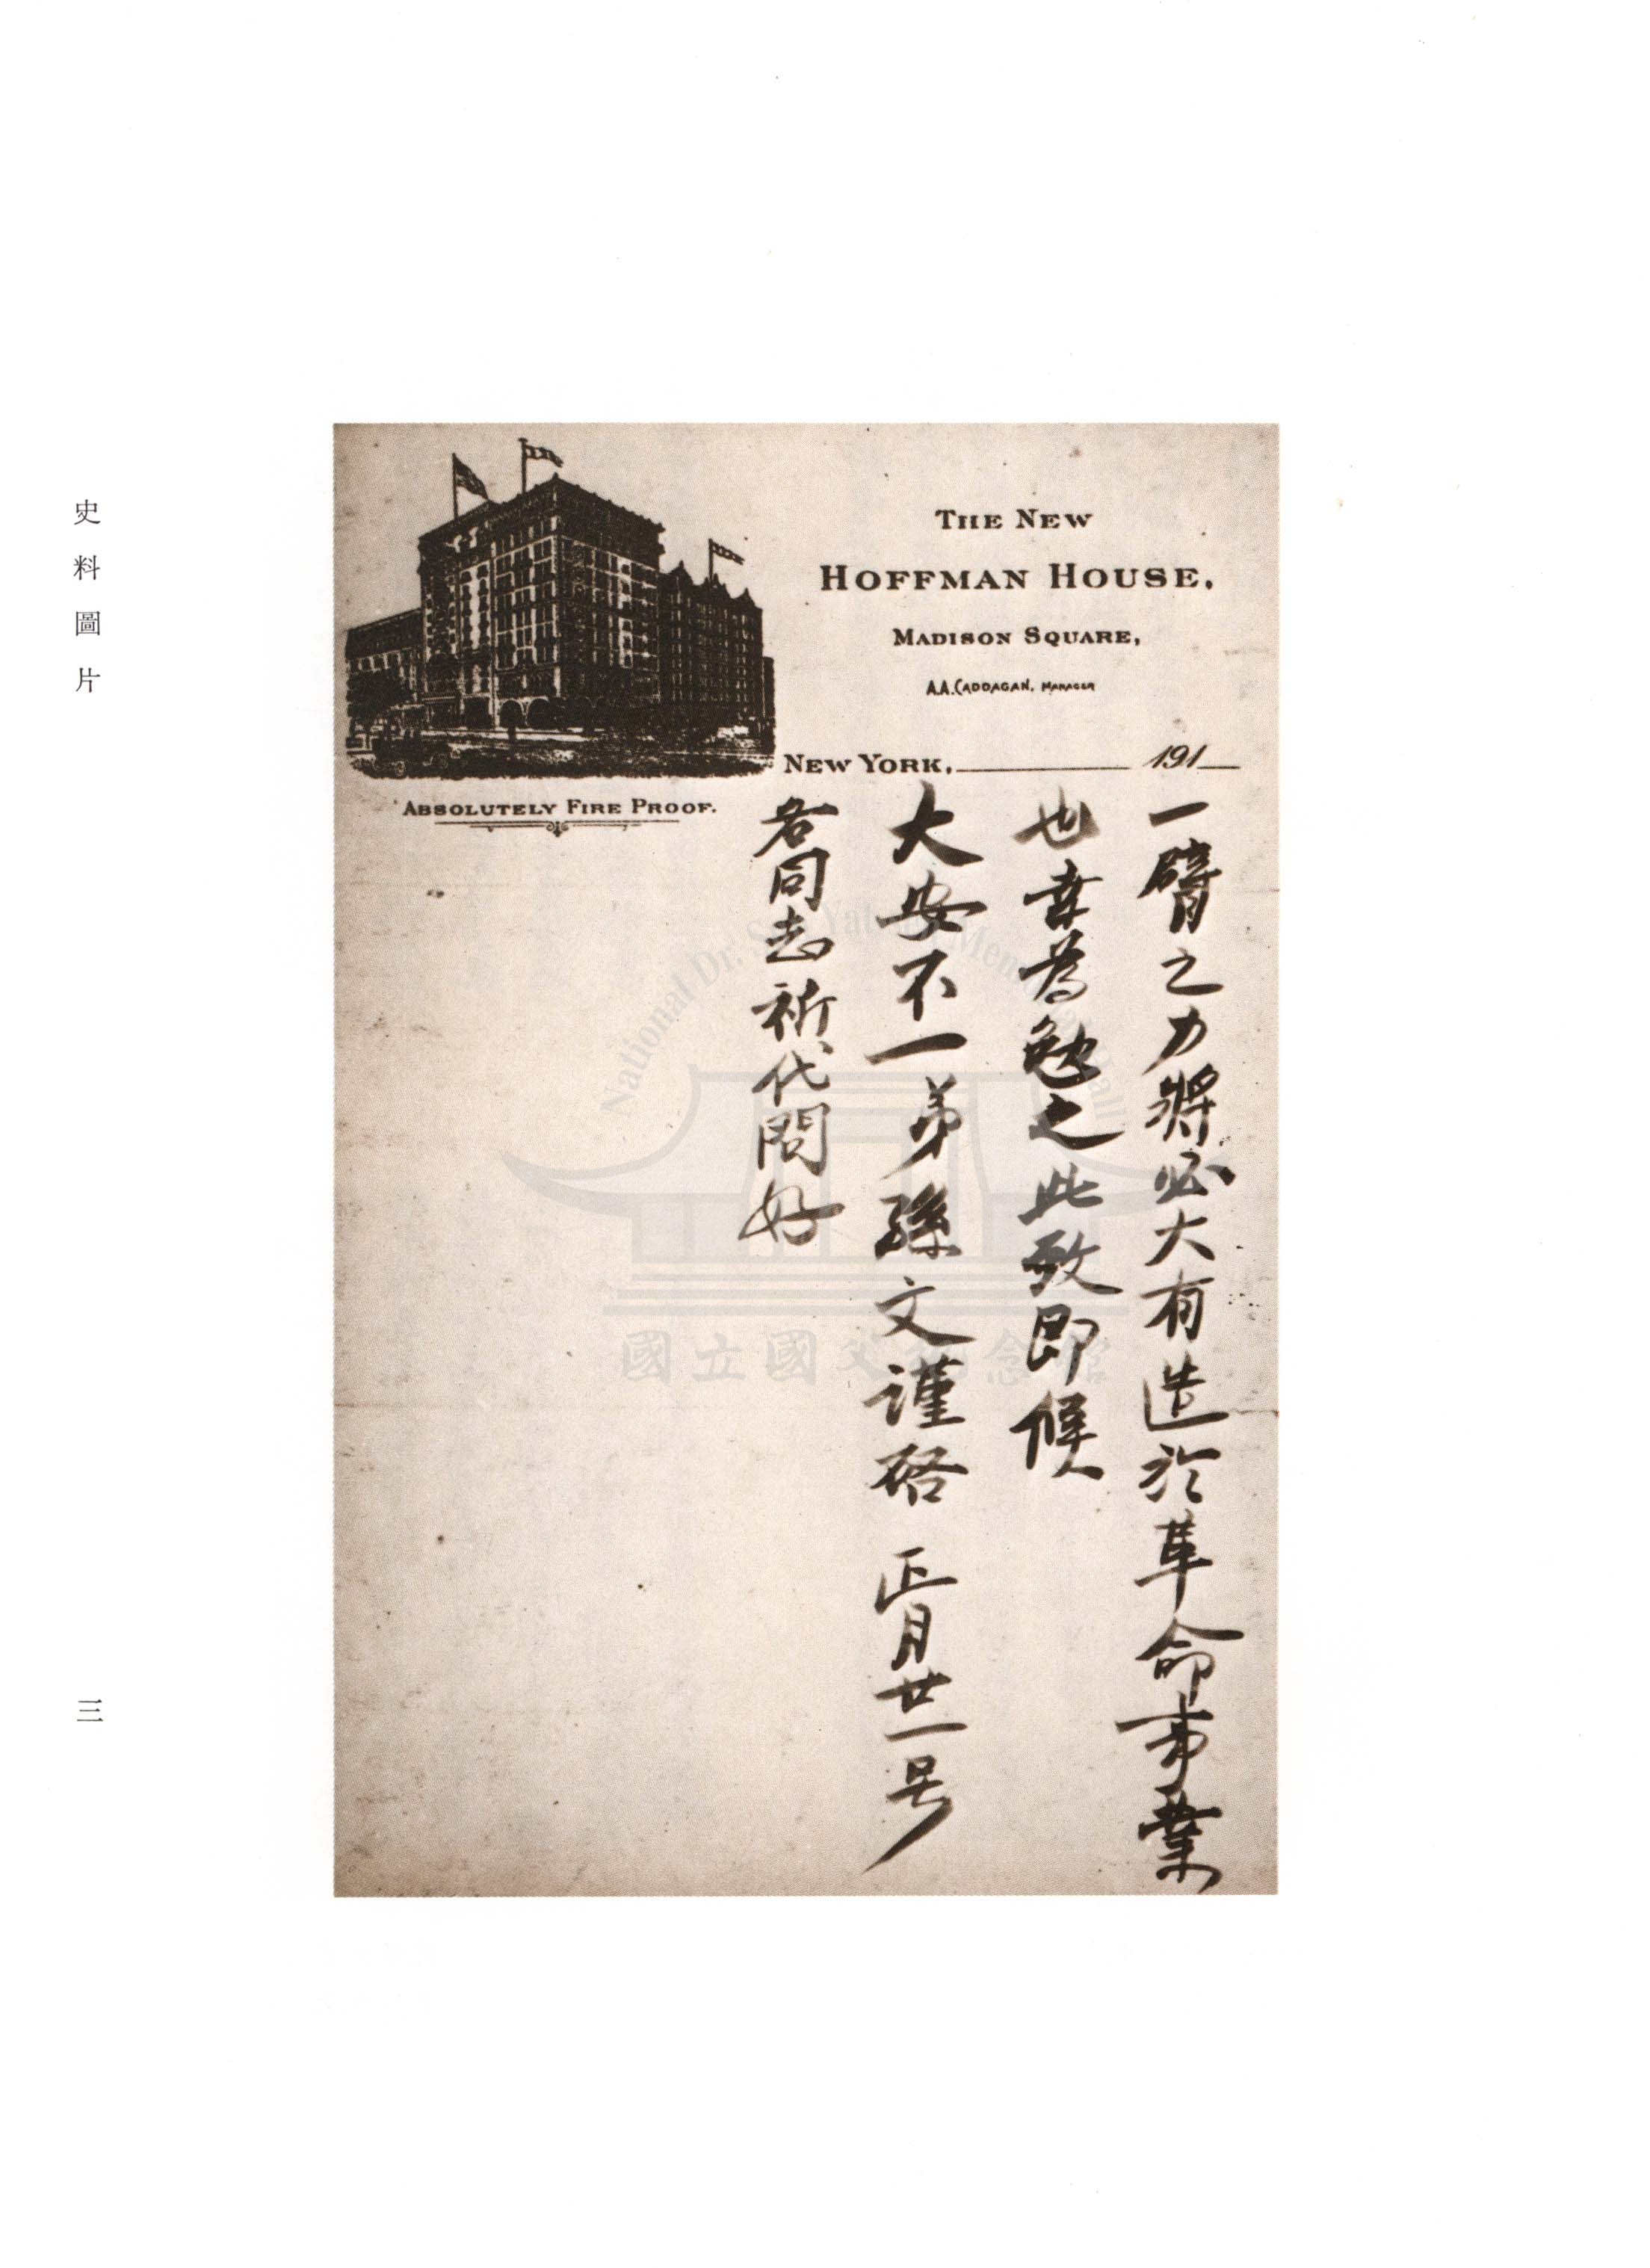 史料圖片
THE NEW
HOFFMAN HOUSE,
MADISON SQUARE,
A.A. CADDAGAN, MANAGER
NEW YORK, 191
ABSOLUTELY FIRE PROOF.
一臂之力將必大有造於革命事業
也幸為勉之此致即候
大安不一弟孫文謹啓 正月廿一号
各同志祈代問好
National Dr. Sun Yat-sen Memorial Hall
國立國父紀念館
三